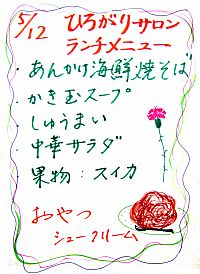 5/12 ひろがりサロン
ランチメニュー
・あんかけ海鮮焼そば
・かき玉スープ
・しゅうまい
・中華サラダ
・果物:スイカ
おやつ
シュークリーム